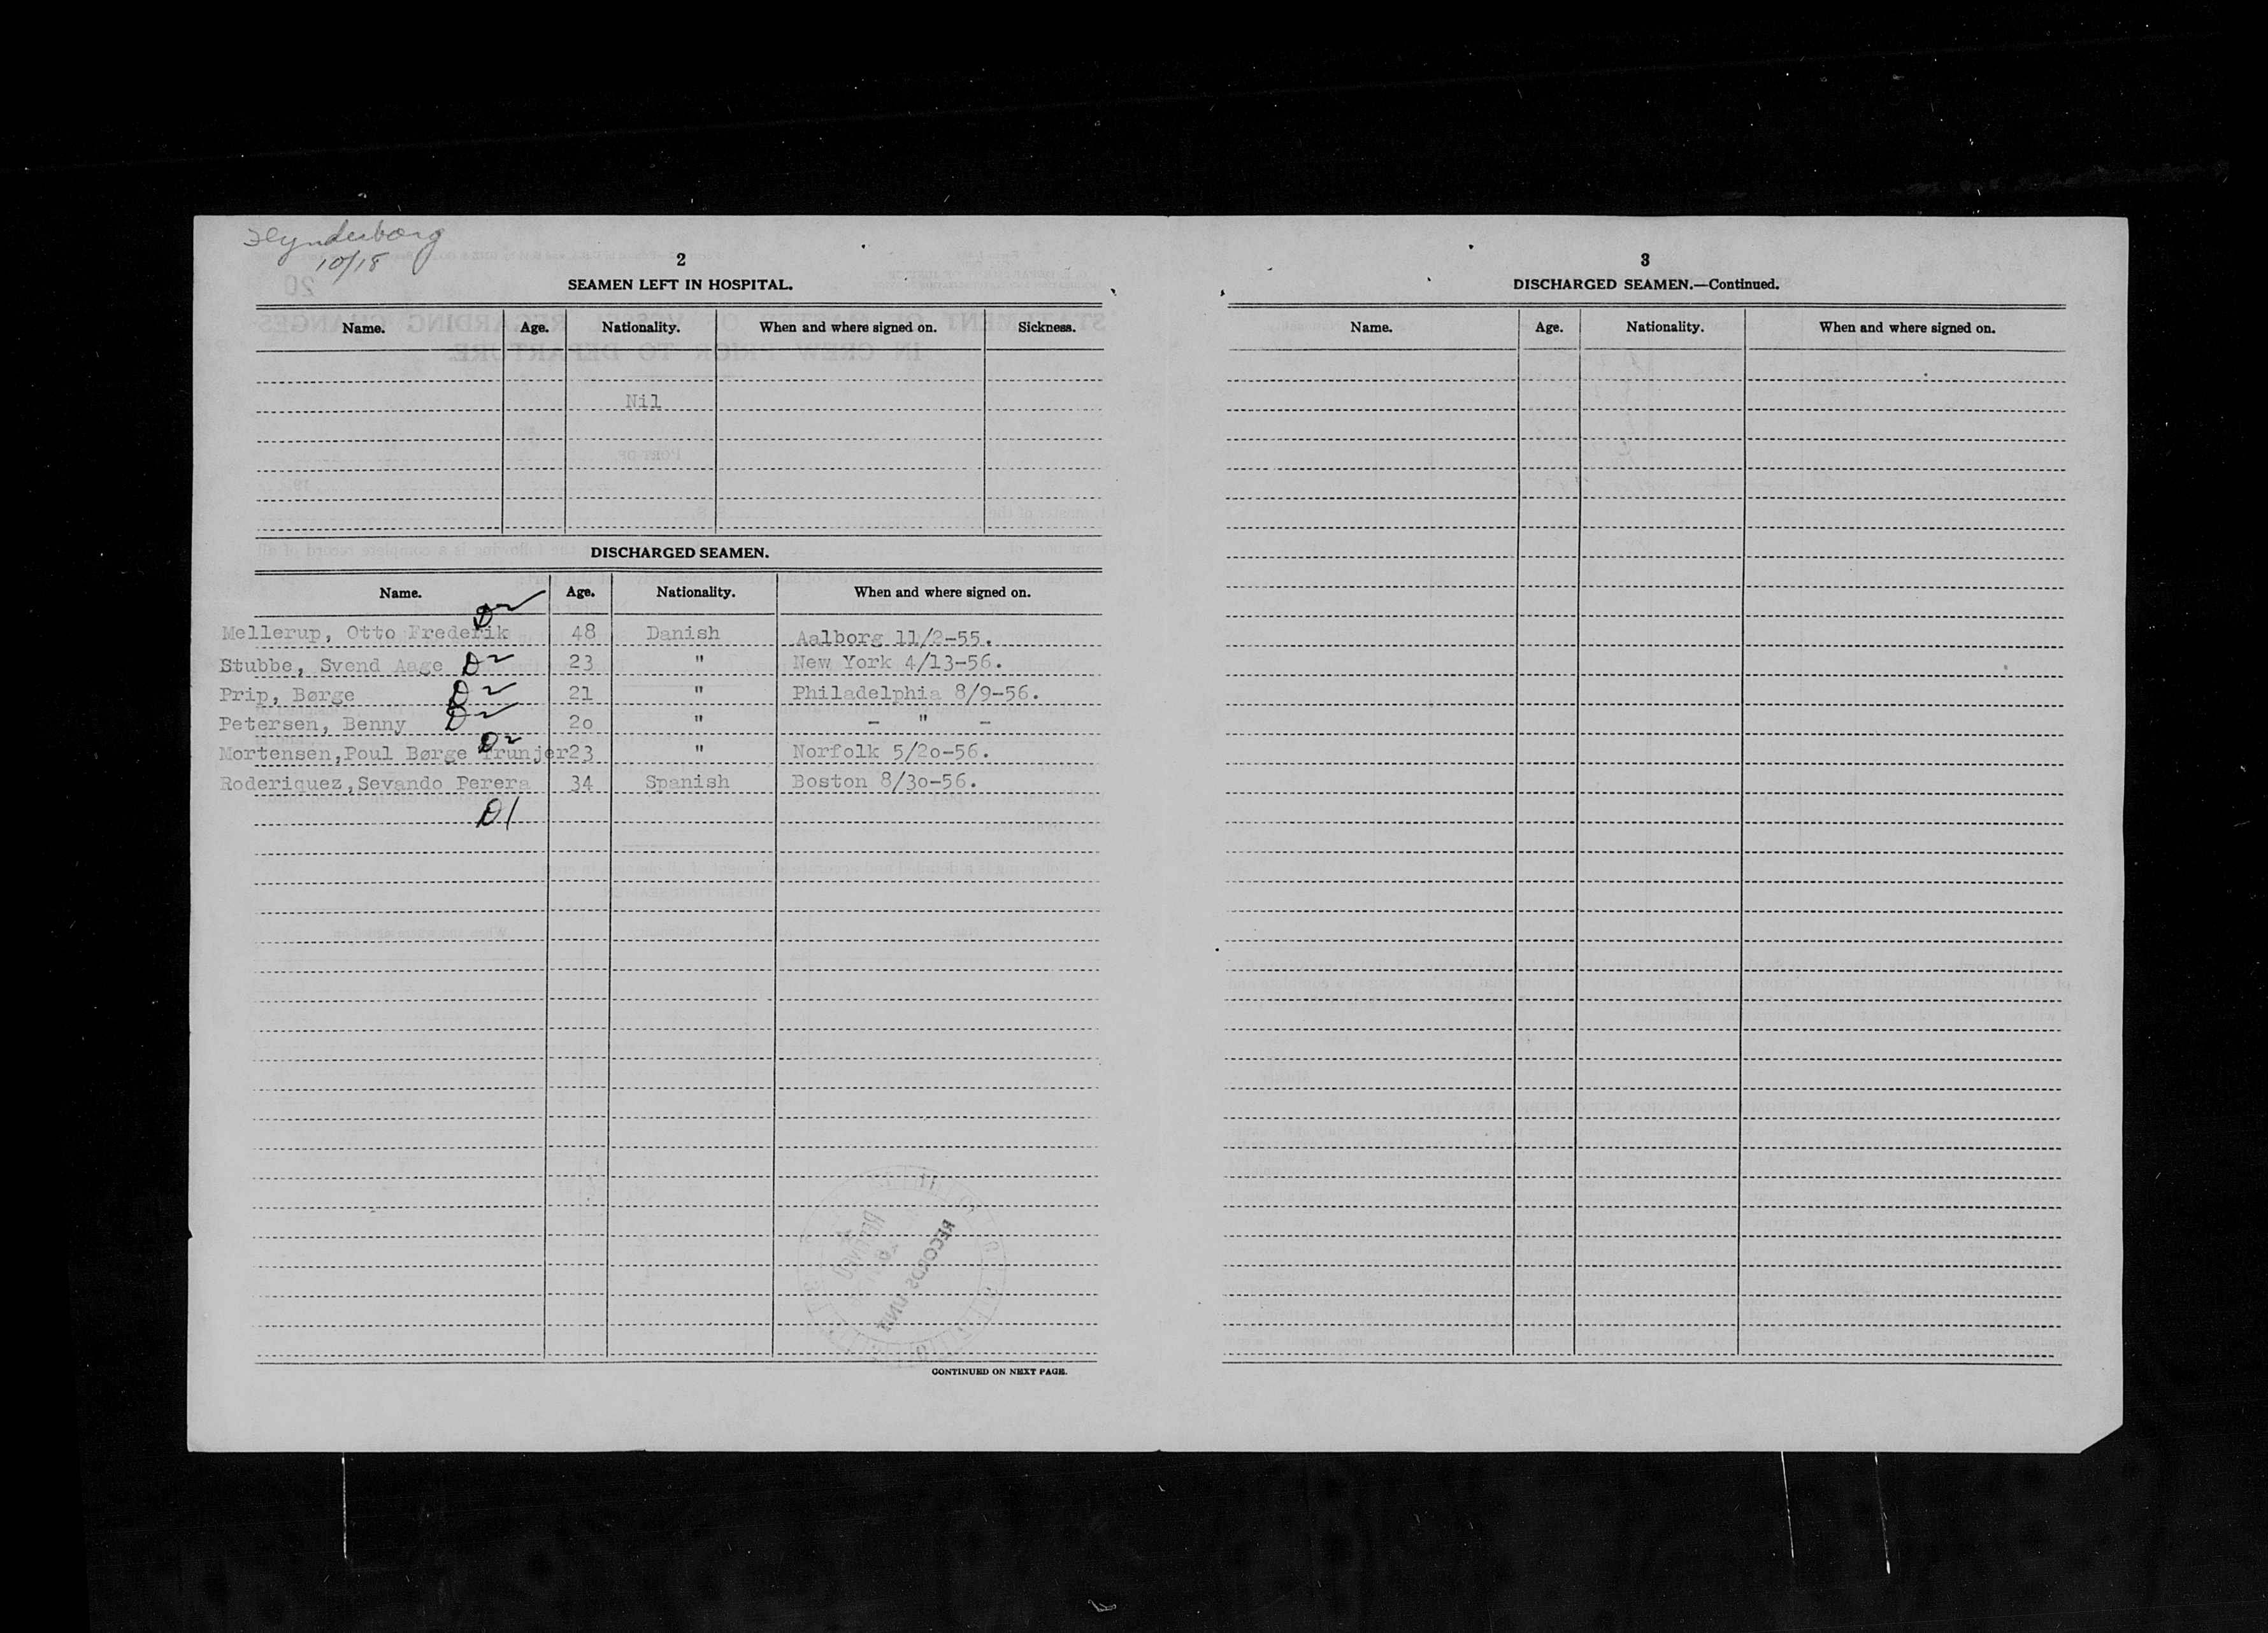 Flynderborg
10/18
2
SEAMEN LEFT IN HOSPITAL.
Name. Age. Nationality. When and where signed on. Sickness.
Nil
DISCHARGED SEAMEN.
Name. Age. Nationality. When and where signed on.
Mellerup, Otto Frederik D2 48 Danish Aalborg 11/2-55.
Stubbe, Svend Aage D2 23 " New York 4/13-56.
Prip, Børge D2 21 " Philadelphia 8/9-56.
Petersen, Benny D2 2o " - " -
Mortensen,Poul Børge Trunjer D2 23 " Norfolk 5/2o-56.
Roderiquez,Sevando Perera 34 Spanish Boston 8/3o-56.
D1
RECORDS UNIT
CONTINUED ON NEXT PAGE.
3
DISCHARGED SEAMEN.—Continued.
Name. Age. Nationality. When and where signed on.